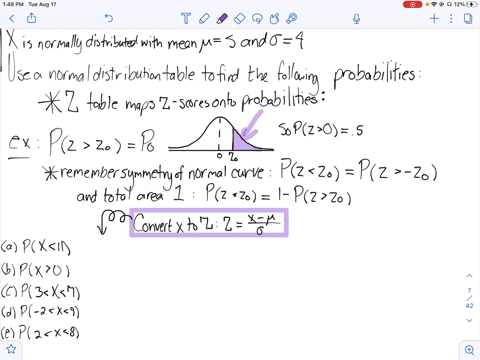 1:49 PM Tue Aug 17
12%
X is normally distributed with mean μ=5 and σ=4
Use a normal distribution table to find the following probabilities:
*Z table maps Z-scores onto probabilities:
ex: P(Z > Z₀) = P₀
0 Z₀
So P(Z>0) = .5
*remember symmetry of normal curve: P(Z<Z₀) = P(Z>-Z₀)
and total area 1: P(Z<Z₀) = 1-P(Z>Z₀)
Convert x to Z: Z = (x-μ)/σ
(a) P(X<11)
(b) P(X>0)
(c) P(3<X<7)
(d) P(-2<X<9)
(e) P(2<X<8)
7
/
42